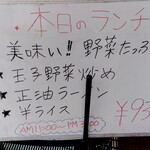 ・本日のランチ
美味い!! 野菜たっぷ
★玉子野菜炒め
★正油ラーメン
★半ライス
¥93
AM11:00〜PM